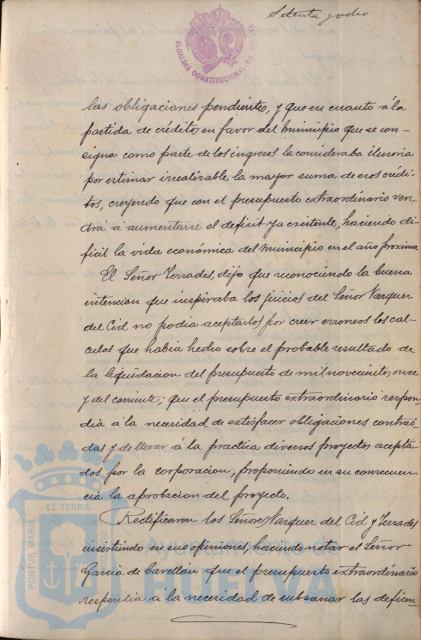 Setenta y ocho
ALCALDIA CONSTITUCIONAL DE
las obligaciones pendientes, y que en cuanto á la
partida de créditos en favor del Municipio que se con-
signa como parte de los ingresos la consideraba ilusoria
por estimar irrealizable la mayor suma de esos crédi-
tos, creyendo que con el presupuesto extraordinario ven-
drá á aumentarse el deficit ya existente, haciendo di-
ficil la vida económica del Municipio en el año proximo.
El Señor Terrades, dijo que reconociendo la buena
intencion que inspiraba los juicios del Señor Vazquez
del Cid no podia aceptarlos por creer erroneos los cal-
culos que habia hecho sobre el probable resultado de
la liquidacion del presupuesto de mil novecientos once
y del corriente; que el presupuesto extraordinario respon-
dia á la necesidad de satisfacer obligaciones contrai-
das y de llevar á la practica diversos proyectos acepta-
dos por la corporacion, proponiendo en su consecuen-
cia la aprobacion del proyecto.
Rectificaron los Señores Vazquez del Cid y Terrades
insistiendo en sus opiniones, haciendo notar el Señor
Garcia de Carellan que el presupuesto extraordinario
respondia á la necesidad de subsanar las deficien-
PORTUS MARIS ET TERRÆ CUSTODIA
Ayuntamiento de
HUELVA